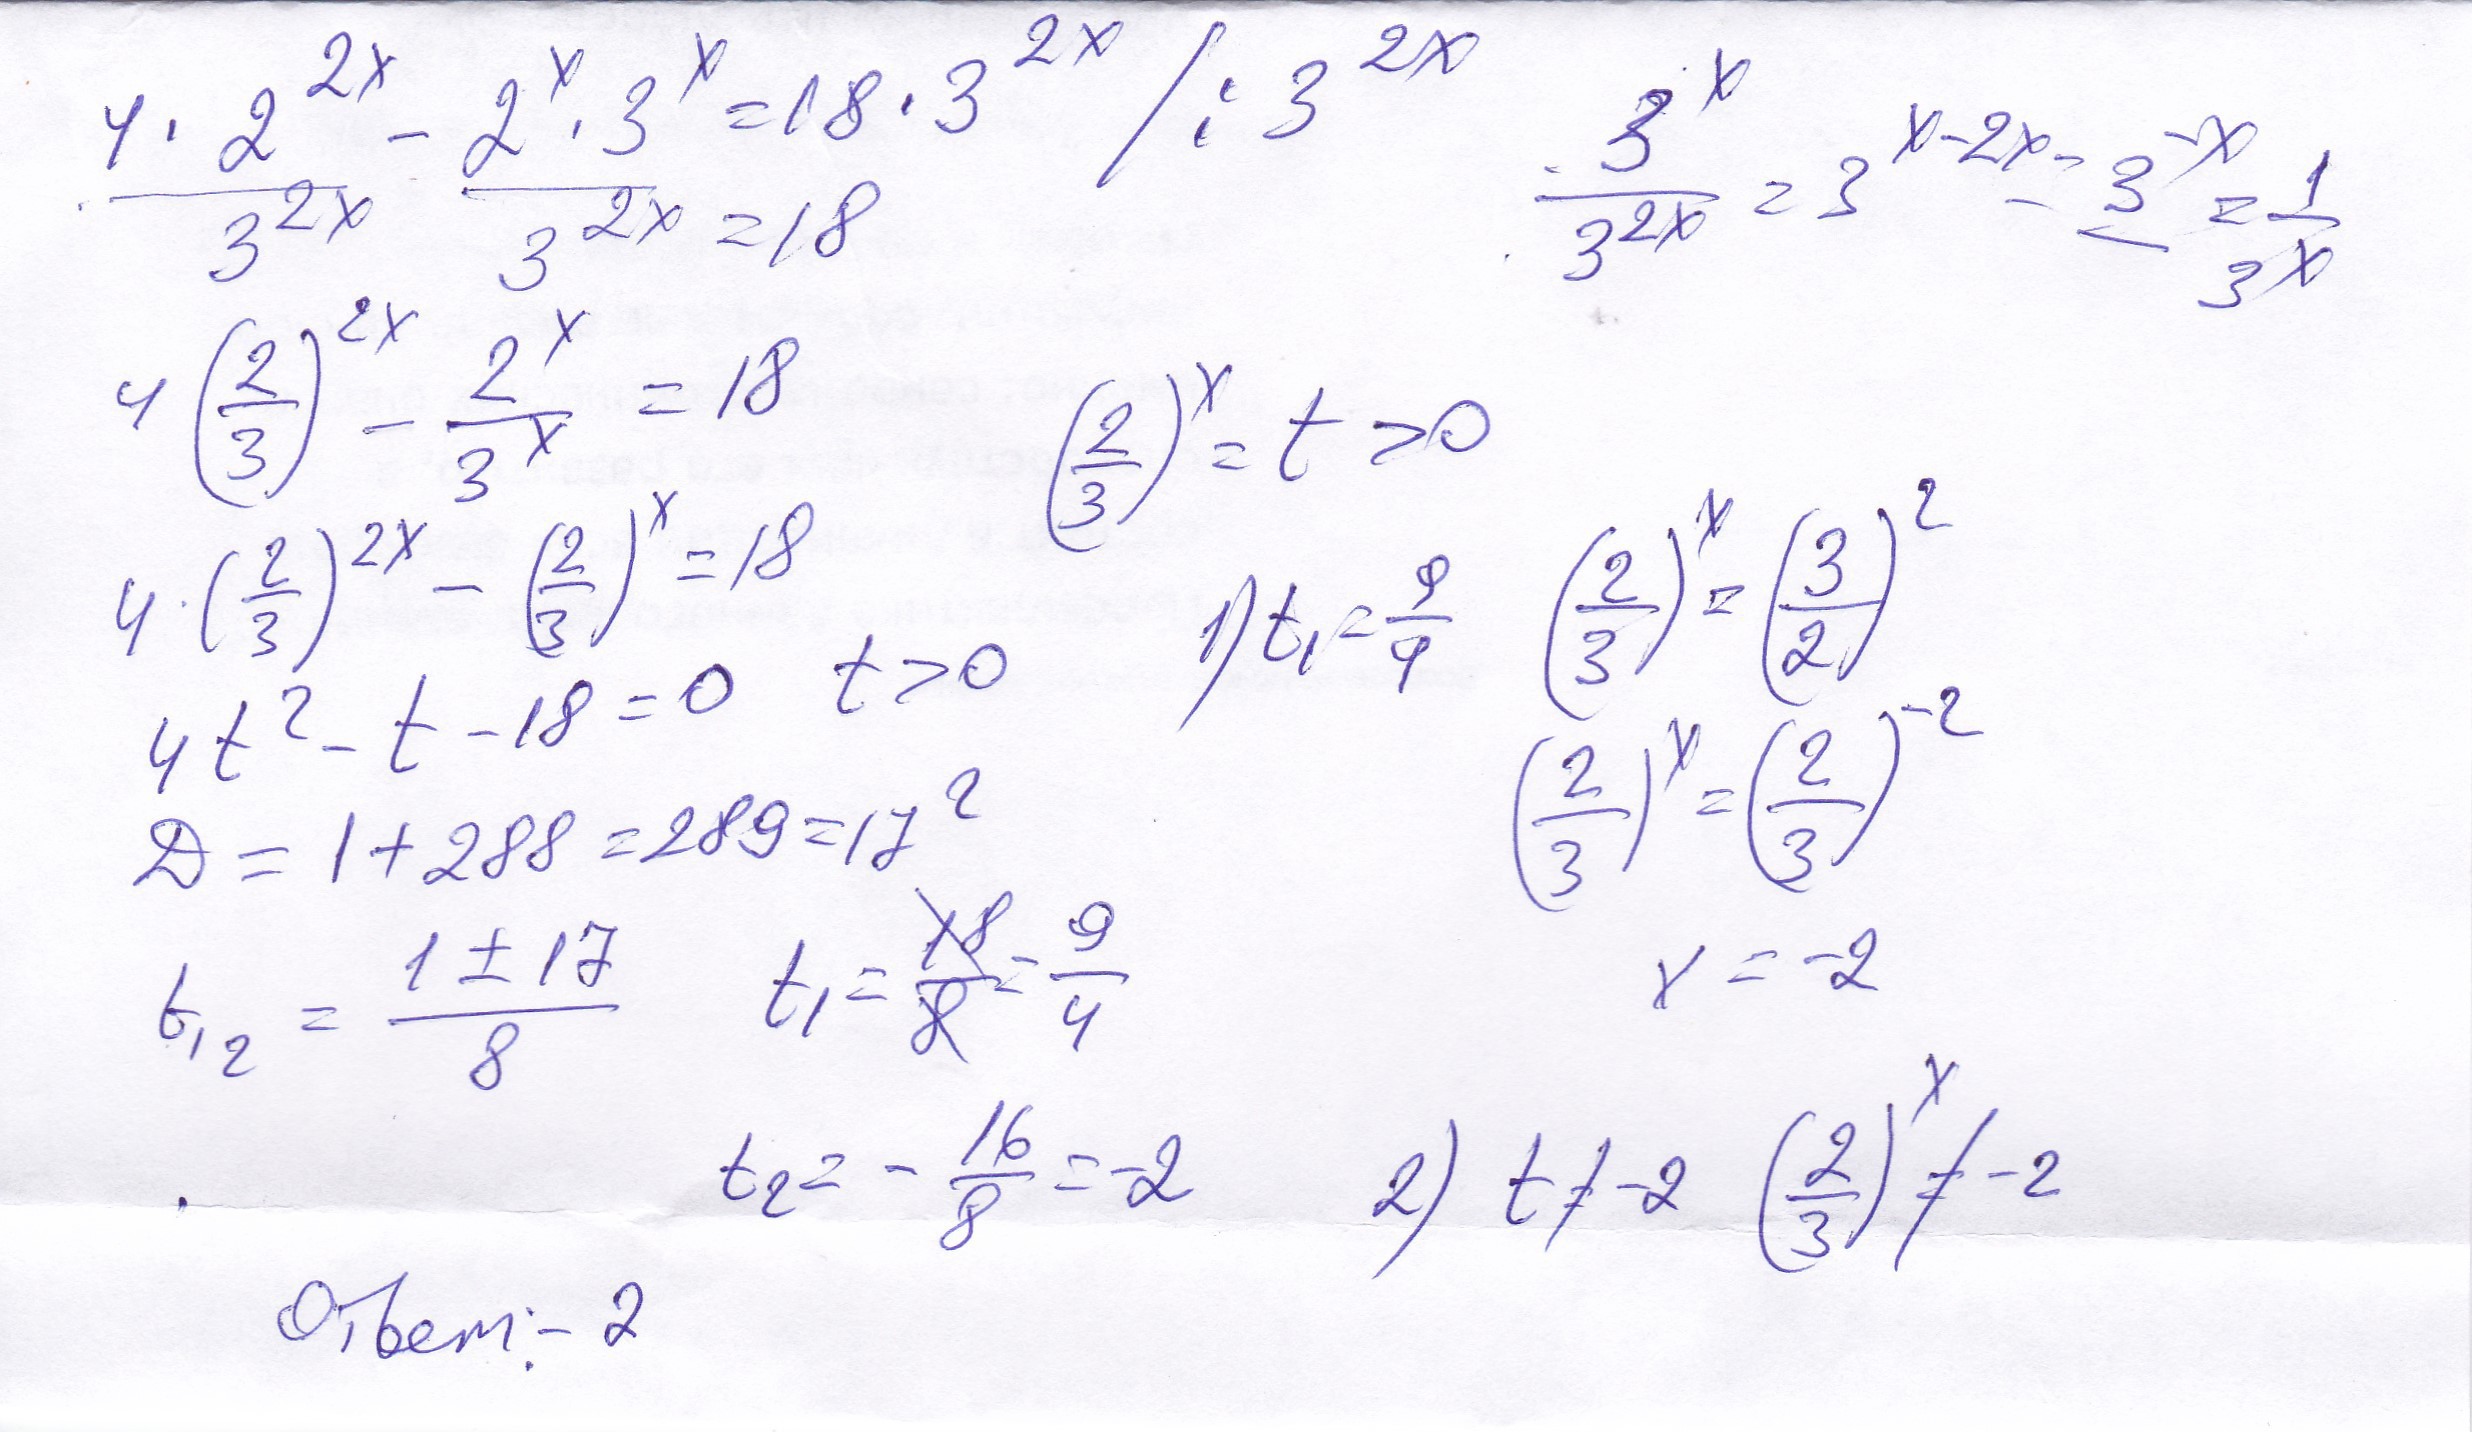 4 · 2^{2x} - 2^x · 3^x = 18 · 3^{2x} / : 3^{2x}
\frac{4 · 2^{2x}}{3^{2x}} - \frac{2^x · 3^x}{3^{2x}} = 18
\frac{3^x}{3^{2x}} = 3^{x-2x} = 3^{-x} = \frac{1}{3^x}
4 (\frac{2}{3})^{2x} - \frac{2^x}{3^x} = 18
(\frac{2}{3})^x = t > 0
4 · (\frac{2}{3})^{2x} - (\frac{2}{3})^x = 18
4t^2 - t - 18 = 0 t > 0
D = 1 + 288 = 289 = 17^2
t_{12} = \frac{1 ± 17}{8} t_1 = \frac{18}{8} = \frac{9}{4}
t_2 = - \frac{16}{8} = -2
1) t_1 = \frac{9}{4} (\frac{2}{3})^x = (\frac{3}{2})^2
(\frac{2}{3})^x = (\frac{2}{3})^{-2}
x = -2
2) t ≠ -2 (\frac{2}{3})^x ≠ -2
Ответ: -2